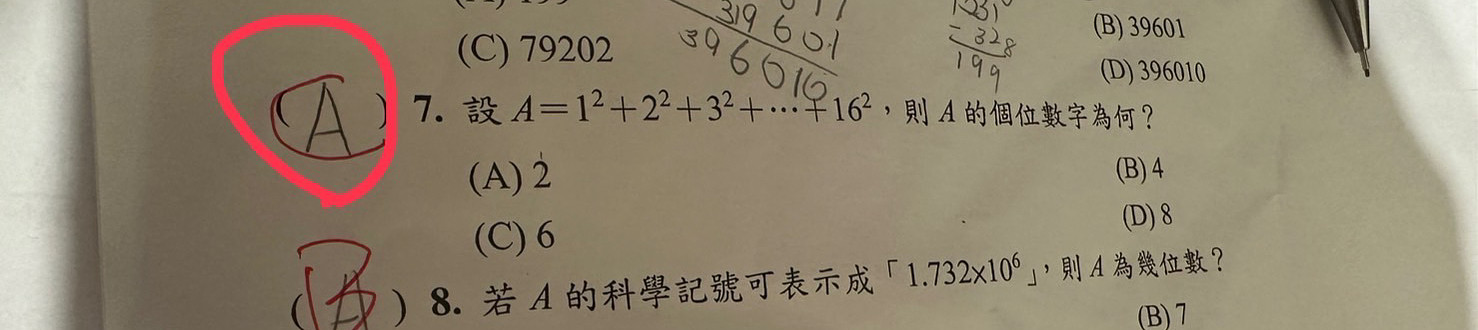 (C) 79202
319601
396010
1
- 328
199
(B) 39601
(D) 396010
( A ) 7. 設 A=1²+2²+3²+⋯+16²,則 A 的個位數字為何?
(A) 2
(B) 4
(C) 6
(D) 8
( B ) 8. 若 A 的科學記號可表示成「1.732x10⁶」,則 A 為幾位數?
(B) 7